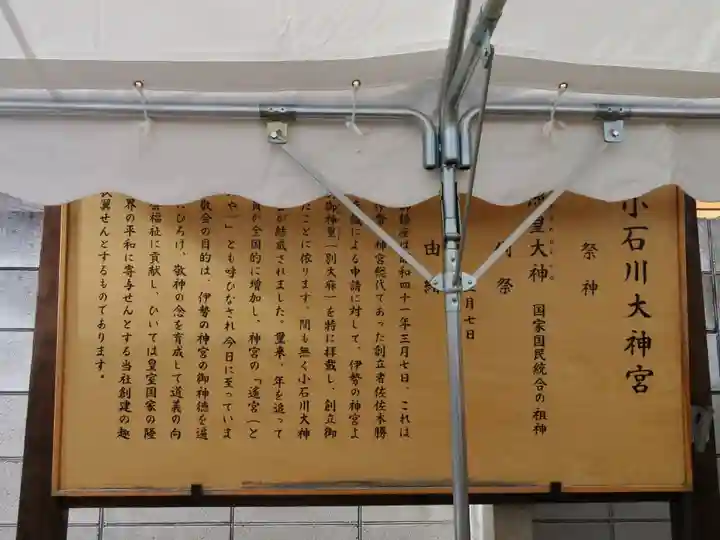 小石川大神宮
祭神
皇大神 国家国民統合の祖神
例祭
月七日
由緒
鎮座は昭和四十一年三月七日、これは
伊勢の神宮総代であった創立者佐佐木勝
による申請に対して、伊勢の神宮よ
御神璽（別大麻）を特に拝戴し、創立御
たことに依ります。間も無く小石川大神
が結成されました。爾来、年を追って
員が全国的に増加し、神宮の「遙宮（と
や）」とも呼びなされ今日に至っていま
敬会の目的は、伊勢の神宮の御神徳を遍
ひろげ、敬神の念を育成して道義の向
福祉に貢献し、ひいては皇室国家の隆
界の平和に寄与せんとする当社創建の趣
翼せんとするものであります。